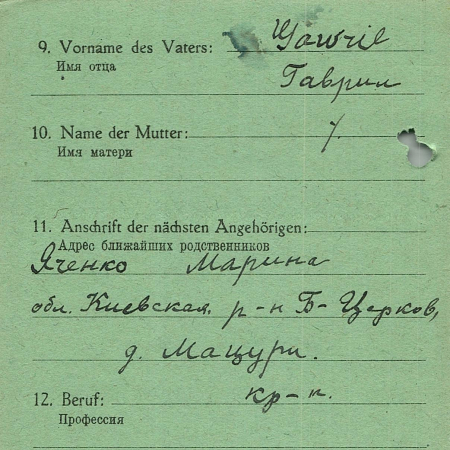 9. Vorname des Vaters: Gawril
Имя отца
Гаврил
10. Name der Mutter:
Имя матери
11. Anschrift der nächsten Angehörigen:
Адрес ближайших родственников
Яченко Марина
обл. Киевская. р-н Б-Церков,
д. Мацури.
12. Beruf: кр-н.
Профессия